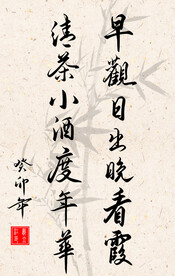 早觀日出晚看霞
清茶小酒度年華
癸卯年